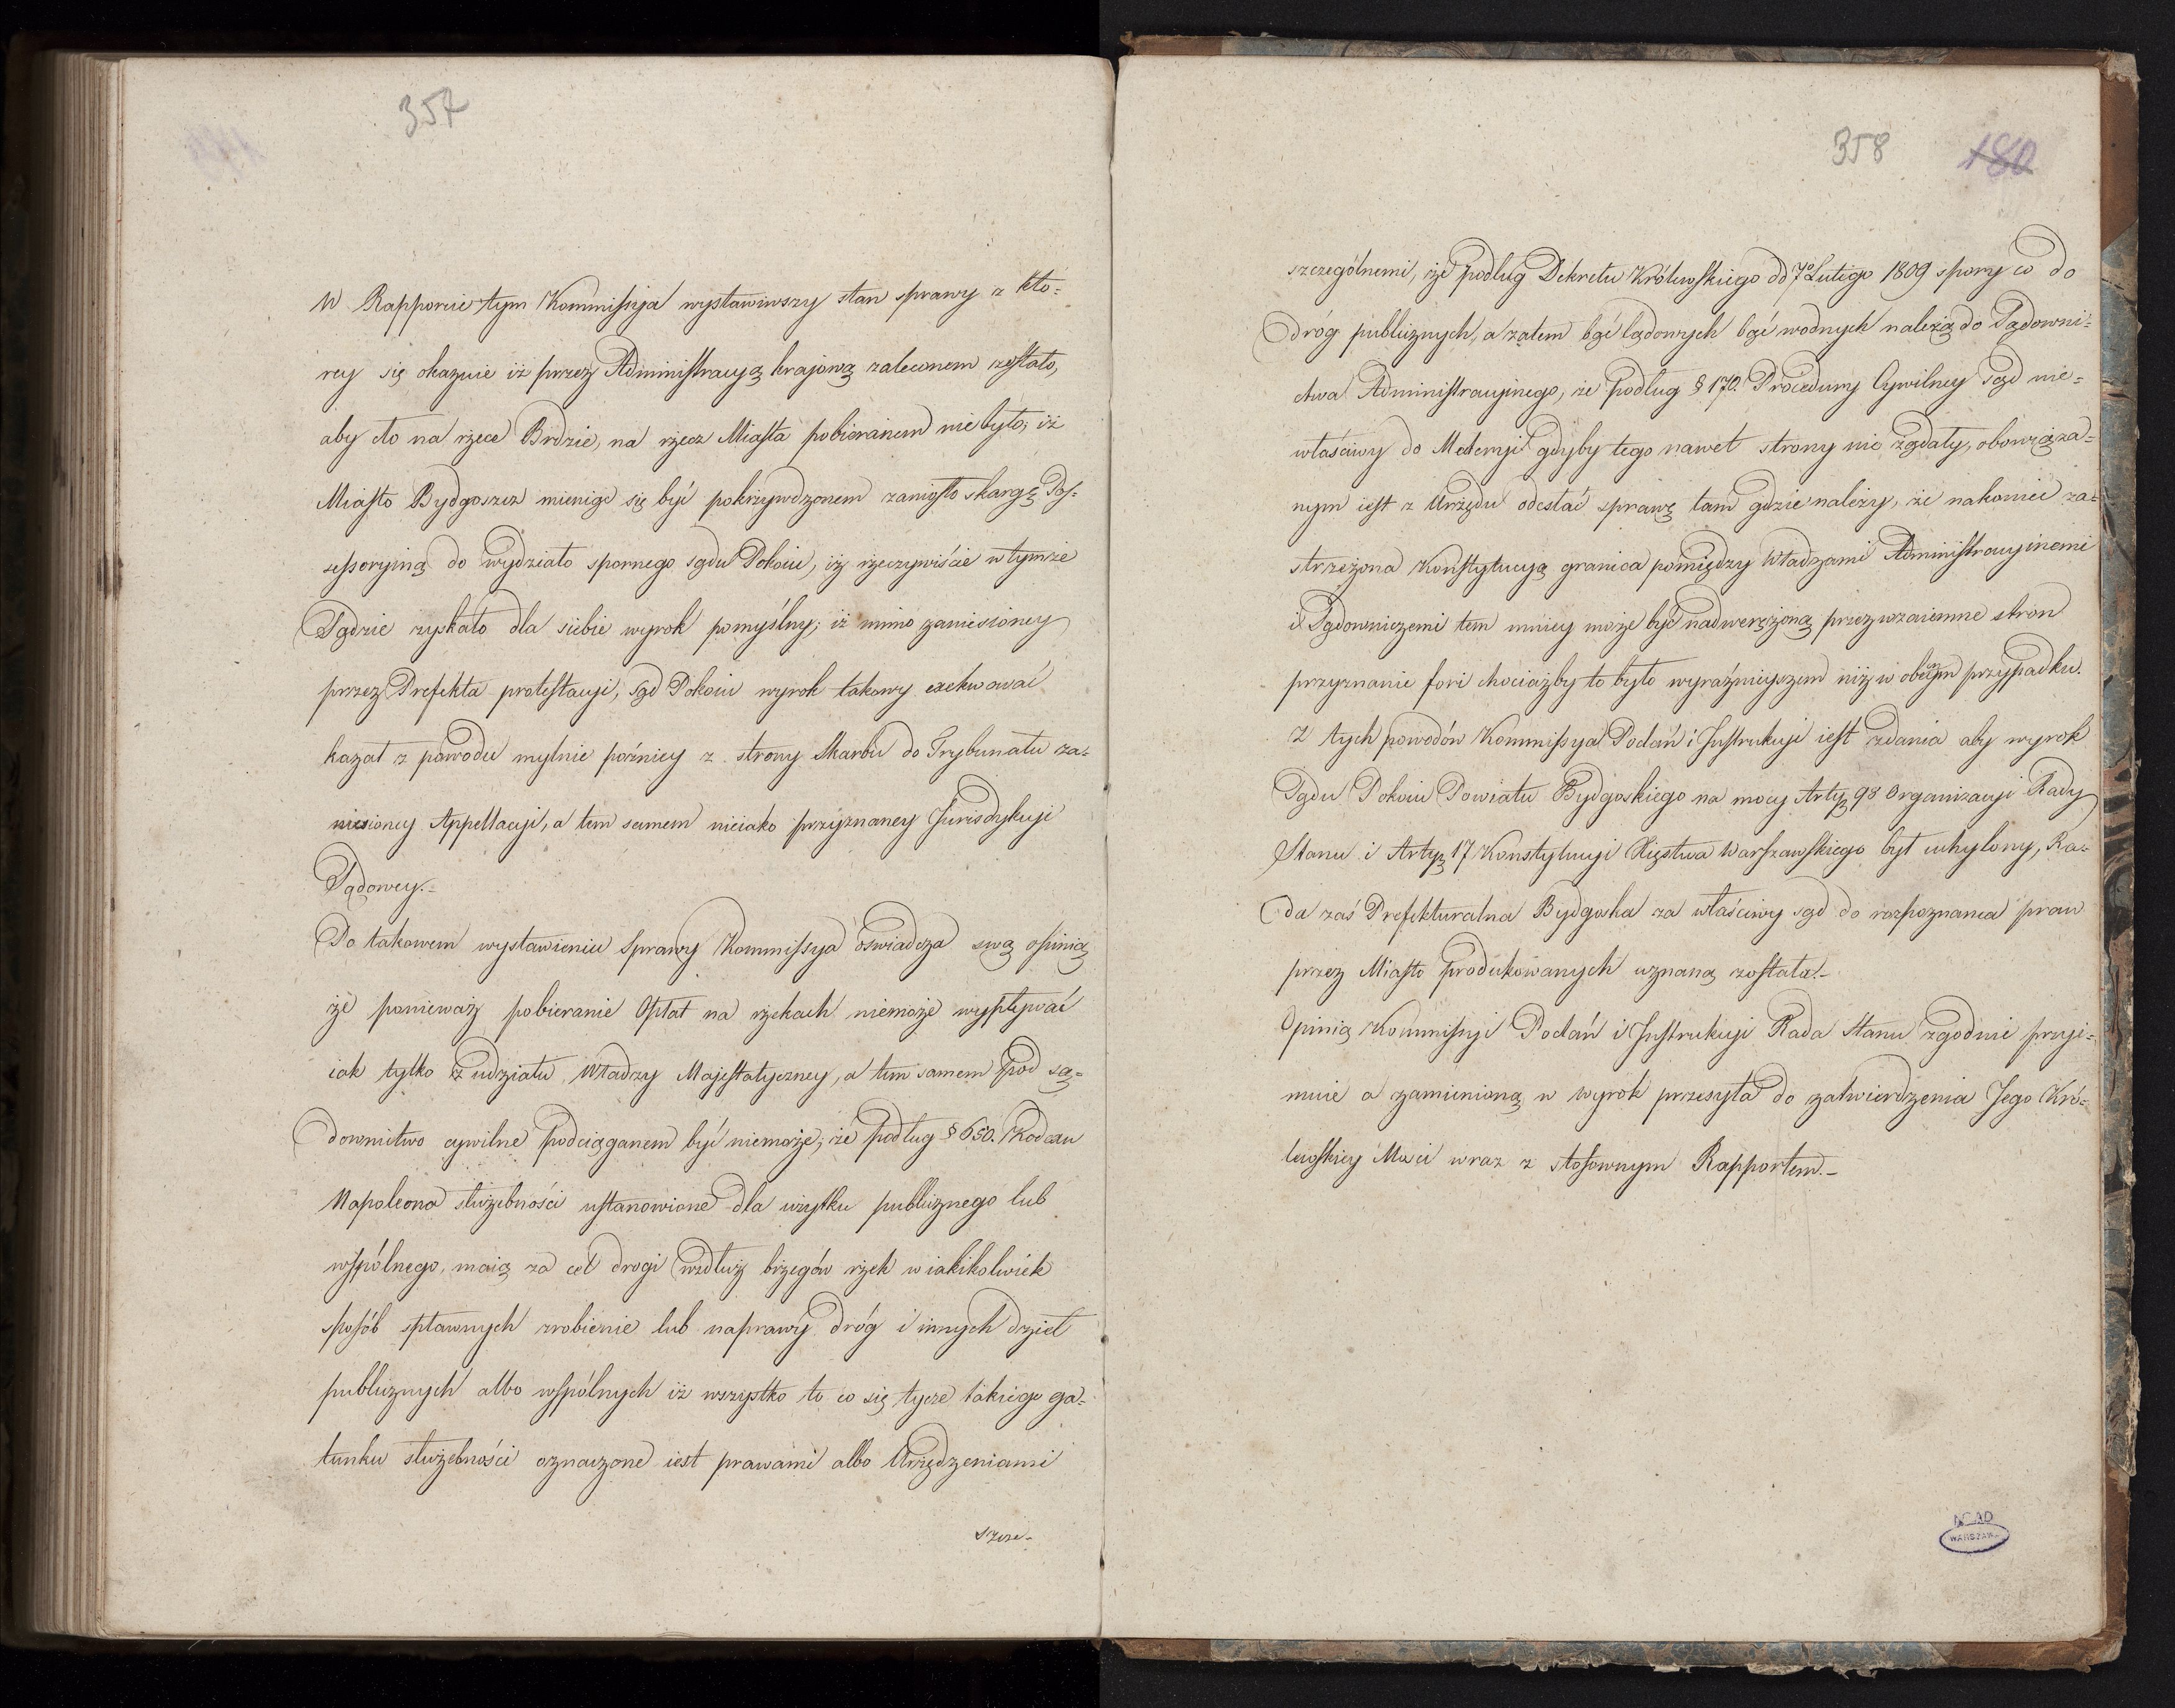 357
W Rapporcie tym Kommissya wystawiwszy stan sprawy z któ=
rey się okazuie iż przez Administracyą krajową zaleconem zostało,
aby cło na rzece Brdzie, na rzecz Miasta pobieranem nie było; iż
Miasto Bydgoszcz mieniąc się być pokrzywdzonem zaniosło skargę Pos=
sessoryiną do wydziało spornego sądu Pokoiu, iż rzeczywiście w tymże
Sądzie zyskało dla siebie wyrok pomyślny; iż mimo zaniesioney
przez Prefekta protestacyi, sąd Pokoiu wyrok takowy exekwować
kazał z powodu mylnie poźniey z strony Skarbu do Trybunału za=
niesioney Appellacyi, a tem samem nieiako przyznaney Jurisdykcyi
Sądowey.=
Po takowem wystawieniu Sprawy Kommissya oświadcza swą opinią
że ponieważ pobieranie Opłat na rzekach niemoże wypływać
iak tylko z udziału Władzy Majestatyczney, a tem samem pod są=
downictwo cywilne podciąganem być niemoże; że podług § 650. Kodexu
Napoleona służebności ustanowione dla użytku publicznego lub
wspólnego, maią za cel drogi wzdłuż brzegów rzek w iakikolwiek
sposób spławnych zrobienie lub naprawy dróg i innych dzieł
publicznych albo wspólnych iż wszystko to co się tycze takiego ga=
tunku służebności oznaczone iest prawami albo Urządzeniami
szcze-
358 180
szczególnemi, że podług Dekretu Królewskiego dd 7º Lutego 1809 spory co do
dróg publicznych, a zatem bąć lądowych bąć wodnych należą do Sądowni=
ctwa Administracyinego, że podług § 170. Procedury Cywilney sąd nie=
właściwy do Materyi gdyby tego nawet strony nie żądały, obowiąza=
nym iest z Urzędu odesłać sprawę tam gdzie należy, że nakoniec za=
strzeżona Konstytucyą granica pomiędzy Władzami Administracyinemi
i Sądowniczemi tem mniey może być nadwerężoną przez wzaiemne stron
przyznanie fori chociażby to było wyraźnieyszem niż w obecnym przypadku.
Z tych powodów Kommissya Podań i Instrukcyi iest zdania aby wyrok
Sądu Pokoiu Powiatu Bydgoskiego na mocy Arty 98 Organizacyi Rady
Stanu i Arty 17 Konstytucyi Xięstwa Warszawskiego był uchylony, Ra=
da zaś Prefekturalna Bydgoska za właściwy sąd do rozpoznania praw
przez Miasto produkowanych uznaną została.-
Opinią Kommissyi Podań i Instrukcyi Rada Stanu zgodnie przyi=
muie a zamienioną w wyrok przesyła do zatwierdzenia Jego Kró=
lewskiey Mości wraz z stosownym Rapportem.-
AGAD
WARSZAWA